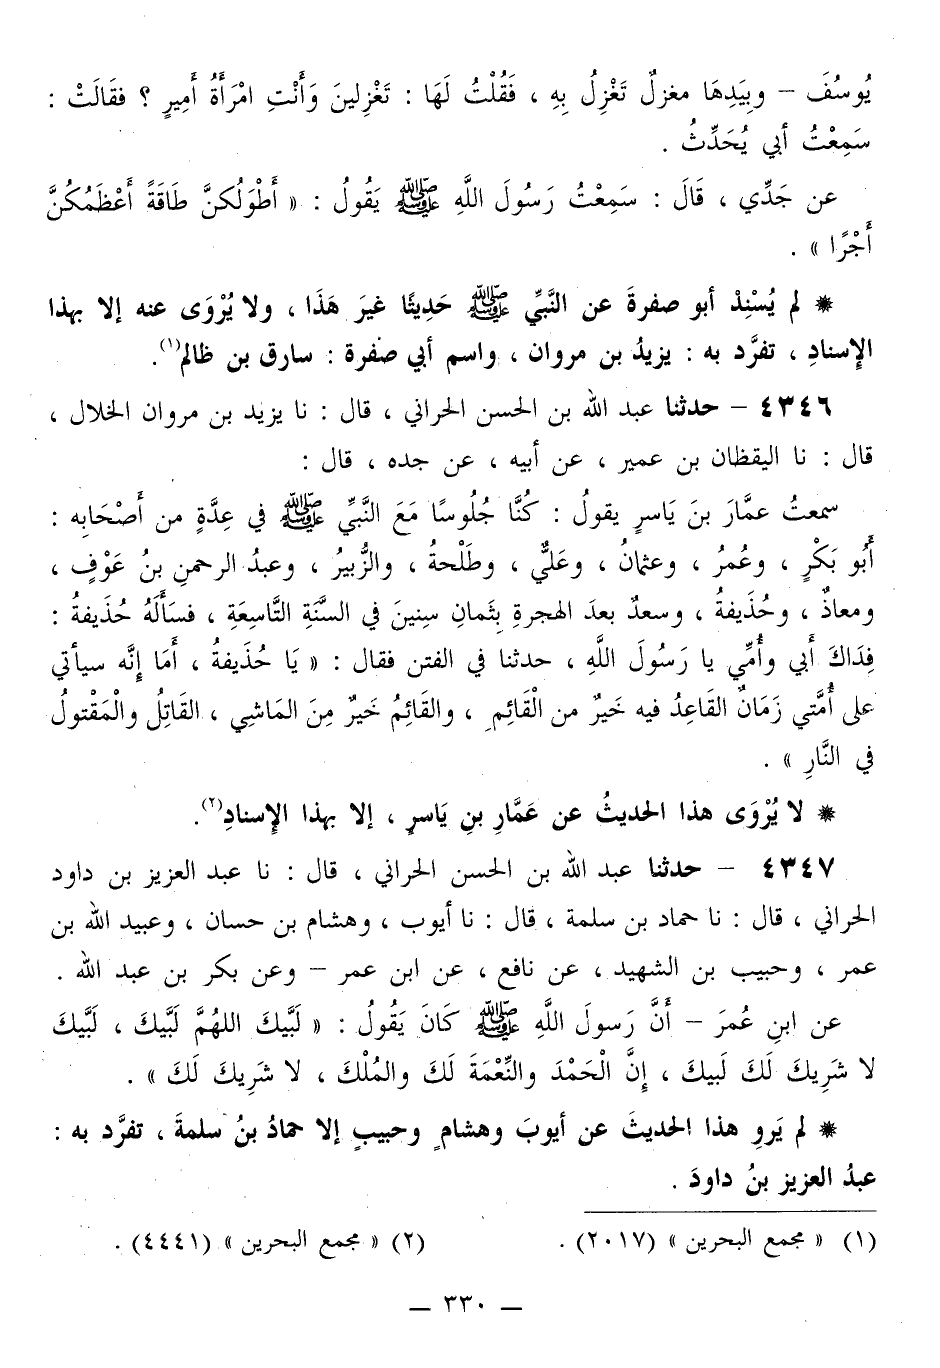 يُوسُفَ – وبِيَدِهَا مغزلٌ تَغْزِلُ بِهِ ، فَقُلْتُ لَهَا : تَغْزِلينَ وَأَنْتِ امْرَأَةُ أَمِيرٍ ؟ فقَالَتْ :
سَمِعْتُ أبي يُحَدِّثُ .
عن جَدِّي ، قَالَ : سَمِعْتُ رَسُولَ اللَّهِ ﷺ يَقُولُ : « أَطْوَلُكنَّ طَاقَةً أَعْظَمُكُنَّ
أَجْرًا » .
* لم يُسْنِدْ أبو صفرةَ عن النَّبِّي ﷺ حَدِيثًا غيرَ هَذَا ، ولا يُرْوَى عنه إلا بهذا
الإِسنادِ ، تفرَّد به : يزيدُ بن مروان ، واسم أبي صفرة : سارق بن ظالم(١).
٤٣٤٦ – حدثنا عبد الله بن الحسن الحراني ، قال : نا يزيد بن مروان الخلال ،
قال : نا اليقظان بن عمير ، عن أبيه ، عن جده ، قال :
سمعتُ عمَّارَ بنَ يَاسرٍ يقولُ : كُنَّا جُلُوسًا مَعَ النَّبيِّ ﷺ في عِدَّةٍ من أَصْحَابِه :
أَبُو بَكْرٍ ، وعُمرُ ، وعثمانُ ، وعَليٌّ ، وطَلْحةُ ، والزُّبيرُ ، وعبدُ الرحمنِ بنُ عَوْفٍ ،
ومعاذٌ ، وحُذَيفةُ ، وسعدٌ بعدَ الهجرةِ بِثَمانِ سِنِينَ في السَّنَةِ التَّاسِعَةِ ، فسَأَلَهُ حُذَيفةُ :
فِدَاكَ أَبي وأُمِّي يا رَسُولَ اللَّهِ ، حدثنا في الفتن فقال : « يَا حُذَيفةُ ، أَمَا إِنَّه سيأتي
على أُمَّتي زَمَانٌ القَاعِدُ فيه خَيرٌ من الْقَائِمِ ، والقَائِمُ خَيرٌ مِنَ المَاشِي ، القَاتِلُ والْمَقْتولُ
في النَّارِ » .
* لا يُرْوَى هذا الحديثُ عن عَمَّارِ بنِ يَاسرٍ ، إلا بهذا الإِسنادِ(٢).
٤٣٤٧ – حدثنا عبد الله بن الحسن الحراني ، قال : نا عبد العزيز بن داود
الحراني ، قال : نا حماد بن سلمة ، قال : نا أيوب ، وهشام بن حسان ، وعبيد الله بن
عمر ، وحبيب بن الشهيد ، عن نافع ، عن ابن عمر – وعن بكر بن عبد الله .
عن ابنِ عُمرَ – أنَّ رَسولَ اللهِ ﷺ كَانَ يَقُولُ : « لَبَّيكَ اللهُمَّ لَبَّيكَ ، لَبَّيكَ
لا شَرِيكَ لَكَ لَبيكَ ، إِنَّ الْحَمْدَ والنِّعْمَةَ لَكَ والمُلْكَ ، لا شَرِيكَ لَكَ » .
* لم يَروِ هذا الحديثَ عن أيوبَ وهشامٍ وحبيبٍ إلا حمادُ بنُ سلمةَ ، تفرَّد به :
عبدُ العزيز بنُ داودَ .
(١) « مجمع البحرين » (٢٠١٧) . (٢) « مجمع البحرين » (٤٤٤١) .
– ٣٣٠ –